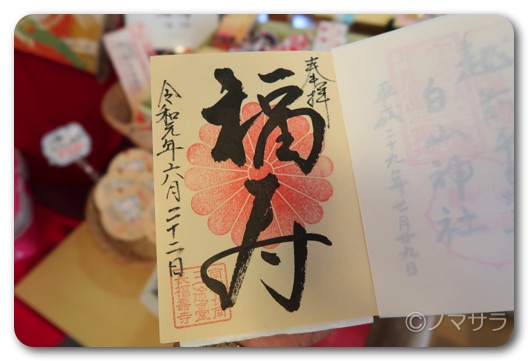 白山神社
平成二十九年七月廿九日
奉拝
福寿
令和元年六月二十二日
長福壽寺
©ノマサラ